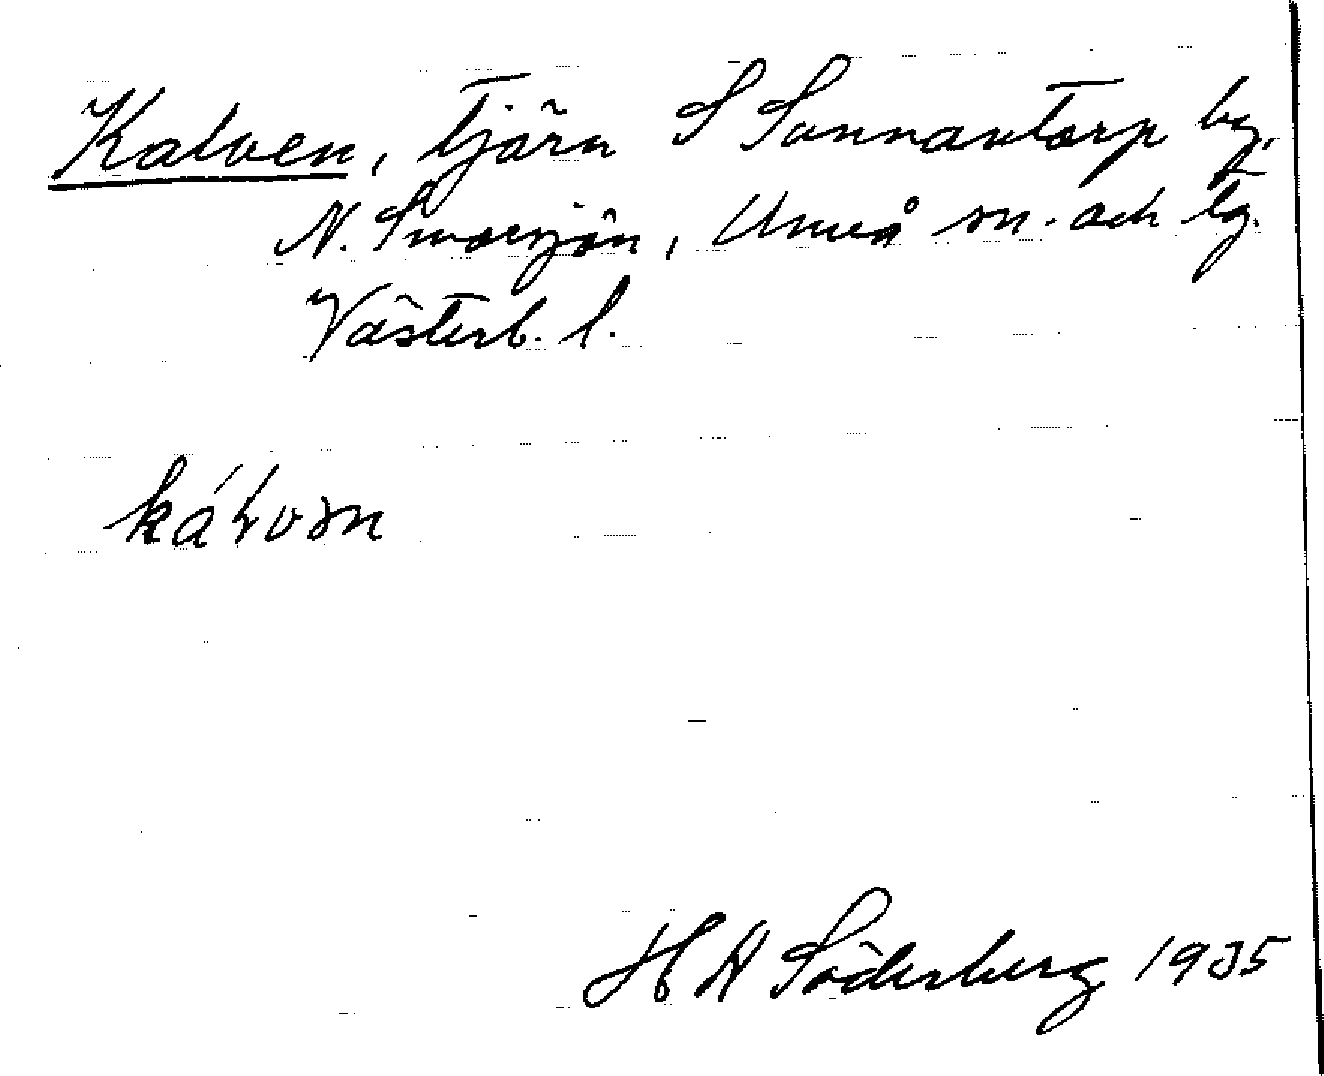 Kalven, Tjärn S Sunnantorp by,
N. Svarsjön, Umeå sn. och lg.
Västerb. l.
kálvən
H A Söderberg 1935